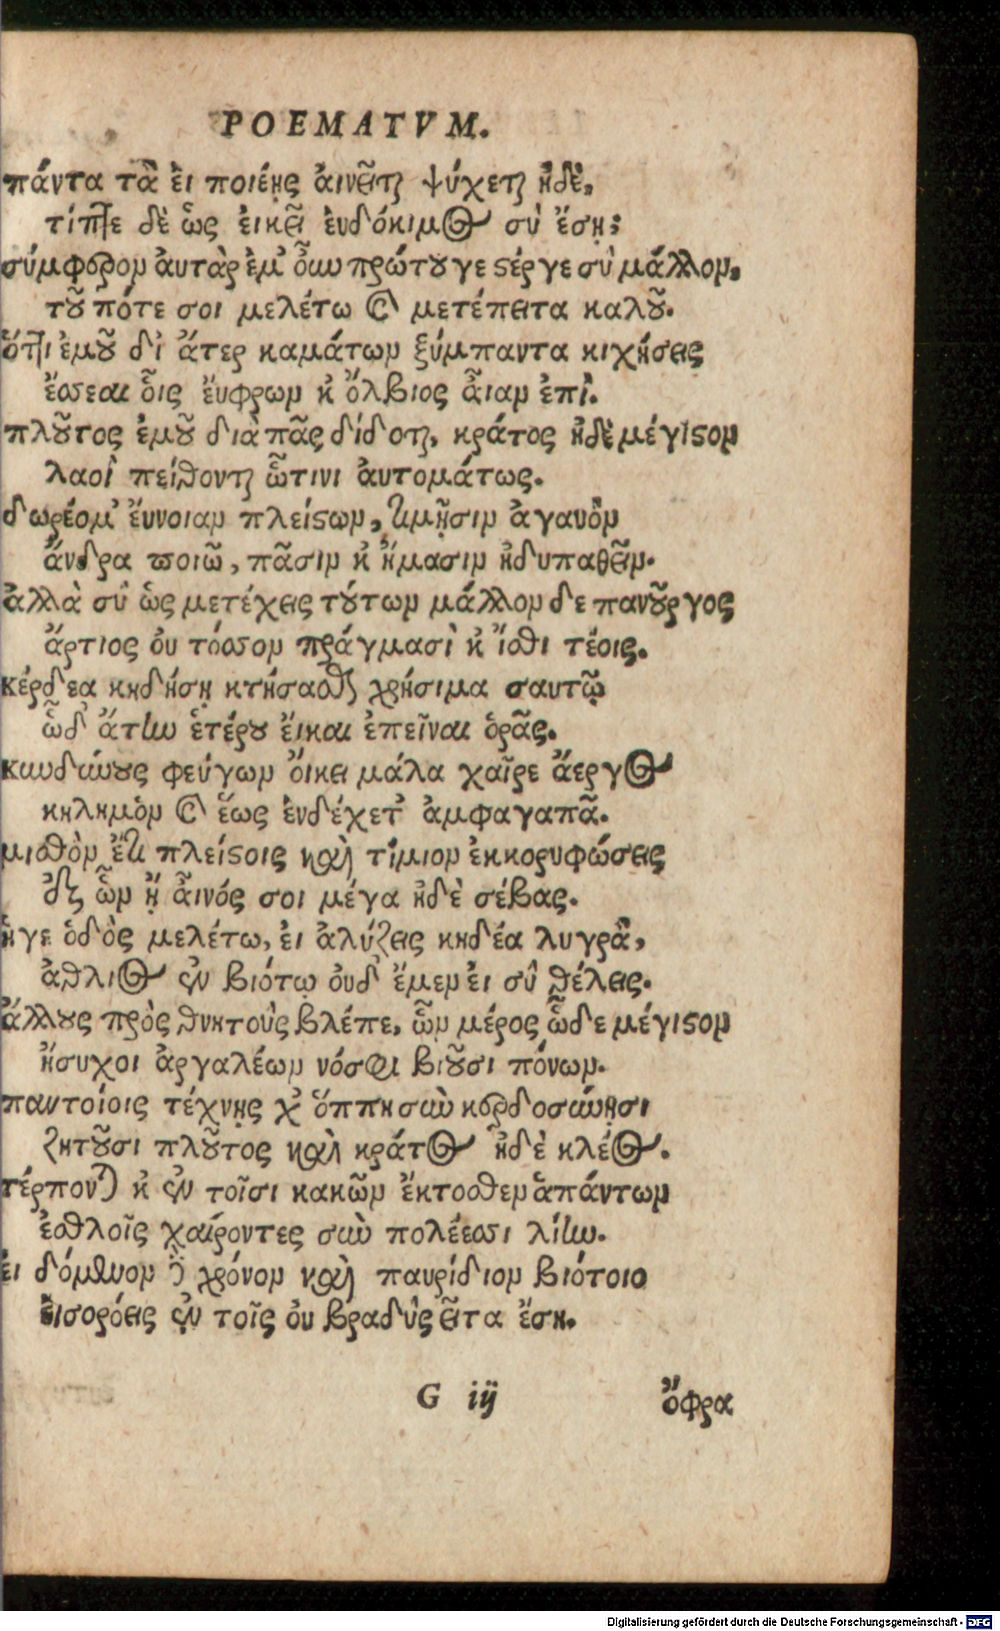 POEMATVM.
πάντα τὰ ἐι ποιέῃς ἀινεῖται ψύχεται ἠδὲ,
τίπτε δὲ ὣς ἐικῆ ἐυδόκιμος σὺ ἔσῃ;
σύμφορον ἀυτὰρ ἐμ' οὖν πρώτου γε στέργε σὺ μᾶλλον,
τοῦ πότε σοι μελέτω καὶ μετέπειτα καλοῦ.
ὅττι ἐμοῦ δι' ἄτερ καμάτων ξύμπαντα κιχήσεις
ἔσσεαι οἷς ἔυφρων κ' ὄλβιος ἆιαν ἐπί.
πλοῦτος ἐμοῦ διὰ πᾶς δίδοται, κράτος ἠδὲ μέγιστον
λαοὶ πείθονται ᾧτινι ἀυτομάτως.
δωρέομ' ἔυνοιαν πλείστων, τιμῇσιν ἀγαυὸν
ἄνδρα ποιῶ, πᾶσιν κ' ἤμασιν ἡδυπαθεῖν.
ἀλλὰ σὺ ὡς μετέχεις τούτων μᾶλλον δε πανοῦργος
ἄρτιος ὀυ τόσσον πράγμασὶ κ' ἴσθι τέοις.
κέρδεα κηδήσῃ κτήσασθαι χρήσιμα σαυτῷ
ὧδ' ἄτην ἑτέρου ἔικαι ἐπεῖναι ὁρᾷς.
κινδύνους φεύγων ὄικει μάλα χαῖρε ἄεργος
κηλημὸν καὶ ἕως ἐνδέχετ' ἀμφαγαπᾶ.
μισθὸν ἔτι πλείστοις καὶ τίμιον ἐκκορυφώσεις
ἐξ ὧν ᾖ ἆινός σοι μέγα ἠδὲ σέβας.
ἥγε ὁδὸς μελέτω, ἐι ἀλύξεις κηδέα λυγρὰ,
ἄθλιος ἐν βιότῳ ὀυδ' ἔμεν ἐι σὺ θέλεις.
ἄλλους πρὸς θνητοὺς βλέπε, ὧν μέρος ὧδε μέγιστον
ἥσυχοι ἀργαλέων νόσφι βιοῦσι πόνων.
παντοίοις τέχνῃς χ' ὅππη σὺν κερδοσύνῃσι
ζητοῦσι πλοῦτος καὶ κράτος ἠδὲ κλέος.
τέρπονται κ' ἐν τοῖσι κακῶν ἔκτοσθεν ἁπάντων
ἐσθλοῖς χαίροντες σὺν πολέεσσι λίην.
ἐι δόμεναι χρόνον καὶ παυρίδιον βιότοιο
ἐισορόεις ἐν τοῖς ὀυ βραδὺς εἶτα ἔση.
G iij ὄφρα
Digitalisierung gefördert durch die Deutsche Forschungsgemeinschaft - DFG